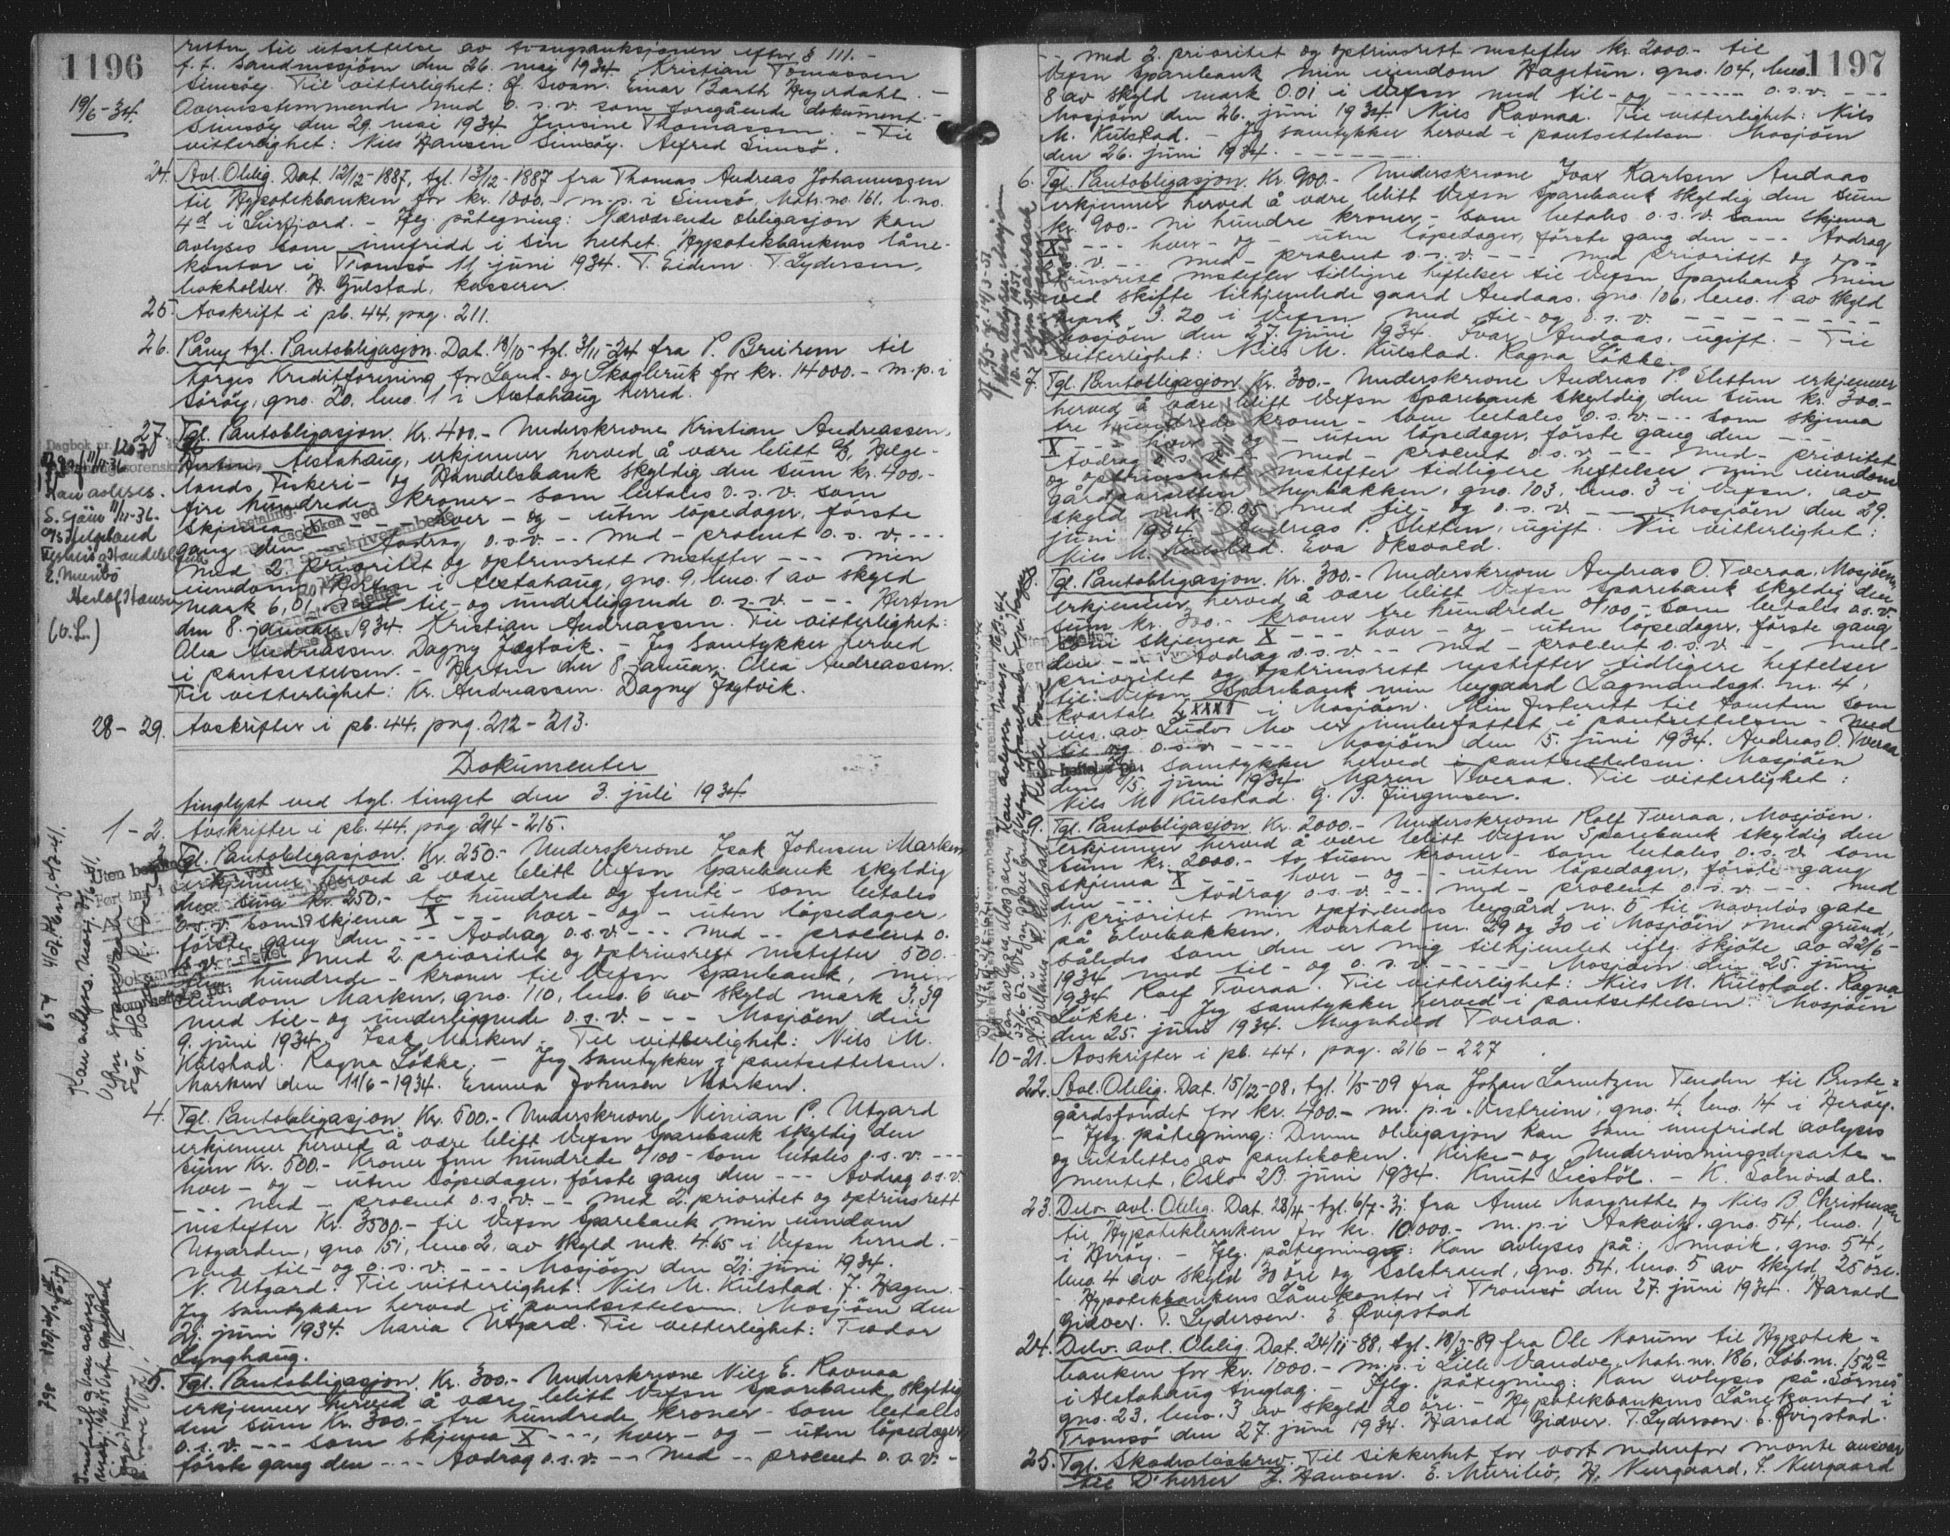 1196
retten til utsettelse av tvangsauksjonen efter § 111. -
f. t. Sandnessjøen den 26. mai 1934 Kristian Tomassen
Simsøy. Til vitterlighet: Einar Barth Heyerdahl. -
19/6-34.
Overensstemmende med o. s. v. som foregående dokument. -
Simsøy den 29 mai 1934 Jensine Thomassen. - Til
vitterlighet: Nils Hansen Simsøy. Alfred Simsø.
24. Avl. Oblig. Dat. 12/12-1887, tgl. 13/12-1887 fra Thomas Andreas Johannessen
til Hypotekbanken for kr. 1000.- m. p. i Simsø, Matr. no. 161. l. no.
4d i Leirfjord. - Iflg. påtegning: Nærværende obligasjon kan
avlyses som innfridd i sin helhet. Hypotekbankens låne-
kontor i Tromsø 11 juni 1934. T. Eidem. T. Lydersen,
bokholder. H. Gulstad, kasserer.
25. Avskrift i pb. 44, pag. 211.
26. Påny tgl. Pantobligasjon. Dat. 18/10- tgl. 3/11-24 fra P. Breihem til
Norges Kreditforening for Land- og Skogbruk for kr. 14000.- m. p. i
Sørøy, gno. 20, bno. 1 i Alstahaug herred.
27. Tgl. Pantobligasjon. Kr. 400.- Underskrevne Kristian Andreassen,
Hertm Alstahaug, erkjenner herved å være blitt Helge-
lands Fiskeri- og Handelsbank skyldig den sum kr. 400.-
fire hundrede kroner - som betales o. s. v. som
skjema --- hver - og - uten løpedager, første
gang den --- Avdrag o.s.v. -- med - procent o. s. v. ---
med 2. prioritet og optrinsrett nestefter --- min
eiendom Horten i Alstahaug, gno. 9, bno. 1 av skyld
mark 6,01 med til- og underliggende o. s. v. --- Herten
den 8. januar 1934. Kristian Andreassen. Til vitterlighet:
Olea Andreassen. Dagny Jægtvik. - Jeg samtykker herved
i pantsettelsen. - Herten den 8 januar. Olea Andreassen.
Til vitterlighet: Kr. Andreassen. Dagny Jægtvik.
28 - 29. Avskrifter i pb. 44, pag. 212 - 213.
Dokumenter
tinglyst ved tgl. tinget den 3. juli 1934
1 - 2. Avskrifter i pb. 44, pag 214 - 215.
3. Tgl. Pantobligasjon. Kr. 250.- Underskrevne Isak Johnsen Marken
erkjenner herved å være blitt Vefsn Sparebank skyldig
den sum kr. 250.- to hundrede og femti - som betales
o.s.v. som skjema X --- hver - og - uten løpedager,
første gang den --- Avdrag o.s.v. --- med -- procent o.
s. v. --- med 2 prioritet og optrinsrett nestefter 500.-
fem hundrede - kroner til Vefsn Sparebank, min
eiendom Marken, gno. 110, bno. 6 av skyld mark 3,39
med til- og underliggende o.s.v. --- Mosjøen den
9. juni 1934 Isak Marken. - Til vitterlighet: Nils M.
Kulstad. Ragna Løkke, - Jeg samtykker i pantsettelsen.
Marken den 11/6-1934. Emma Johnsen Marken.
4. Tgl. Pantobligasjon. Kr. 500.- Underskrevne Ninian P. Utgard
erkjenner herved å være blitt Vefsn Sparebank skyldig den
sum kr. 500.- kroner fem hundrede 0/100 - som betales o.s.v. ---
hver - og - uten løpedager, første gang den --- Avdrag o.s.v.
--- med - procent o.s.v. -- med 2 prioritet og optrinsrett
nestefter kr. 3500.- til Vefsn Sparebank min eiendom
Utgarden, gno 151, bno 2, av skyld mk. 4.65 i Vefsn herred. -
med til- og o.s.v. --- Mosjøen den 23. juni 1934.
N. Utgard. Til vitterlighet: Nils M. Kulstad. J. Hagen. -
Jeg samtykker herved i pantsettelsen. Mosjøen den
23. juni 1934. Maria Utgard. Til vitterlighet: Teodor
Lynghaug.
5. Tgl. Pantobligasjon. Kr. 300.- Underskrevne Nils E. Ravnaa
erkjenner herved å være blitt Vefsn Sparebank skyldig
den sum kr. 300.- tre hundrede kroner - som betales
o.s.v. --- som skjema X ---, hver - og - uten løpedager
første gang den --- Avdrag o.s.v. --- med -- procent o. s. v. -
1197
- med 2. prioritet og optrinsrett nestefter kr. 2000.- til
Vefsn Sparebank min eiendom Hagetun. gno. 104, bno.
8 av skyld mark 0.01 i Vefsn med til- og ------ o.s.v. ---
Mosjøen den 26. juni 1934. Nils Ravnaa. Til vitterlighet: Nils
M. Kulstad. - Jeg samtykker herved i pantsettelsen. Mosjøen
den 26. juni 1934. -------
6. Tgl. Pantobligasjon. Kr. 900.- Underskrevne Ivar Karlsen Andaas
erkjenner herved å være blitt Vefsn Sparebank skyldig den sum
kr. 900.- ni hundre kroner - som betales o. s. v. som skjema
X --- hver - og - uten løpedager, første gang den --- Avdrag
o.s.v --- med - procent o.s.v. --- med prioritet og op-
trinsrett nestefter tidligere heftelser til Vefsn Sparebank min
ved skifte tilhjemlede gaard Andaas. gno. 106, bno. 1 av skyld
mark 3.20 i Vefsn med til- og o.s.v. -------
Mosjøen den 27. juni 1934. Ivar Andaas, ugift. - Til
vitterlighet: Nils M. Kulstad. Ragna Løkke.
7. Tgl. Pantobligasjon. Kr. 300.- Underskrevne Andreas P. Sletten erkjenner
herved å være blitt Vefsn Sparebank skyldig den sum kr. 300.-
tre hundrede kroner - som betales o. s. v. --- som skjema
X --- hver - og - uten løpedager, første gang den ---
Avdrag o.s.v. -- med - procent o.s.v. --- med - prioritet
og optrinsrett nestefter tidligere heftelser min eiendom
gårdparsellen Myrbakken, gno. 103, bno. 3 i Vefsn, av
skyld mk. 0.05 med til- og o.s.v. --- Mosjøen den 29.
juni 1934. Andreas P. Sletten, ugift. Til vitterlighet:
Nils M. Kulstad. Eva Oksvold.
8. Tgl. Pantobligasjon. Kr. 300.- Underskrevne Andreas O. Tveraa, Mosjøen
erkjenner herved å være blitt Vefsn Sparebank skyldig den
sum kr. 300.- kroner tre hundrede 0/100 - som betales o.s.v.
som skjema X --- hver - og - uten løpedager, første gang
den --- Avdrag o.s.v. --- med - procent o.s.v. -- med -
prioritet og optrinsrett nestefter tidligere heftelser
til Vefsn Sparebank min bygaard Lagmandsgt. nr. 4,
kvartal XXXI i Mosjøen. Min festerett til tomten som
eies av Ludv. Mo er innbefattet i pantsettelsen - med
til og o.s.v --- Mosjøen den 15. juni 1934. Andreas O. Tveraa
Jeg samtykker herved i pantsettelsen. Mosjøen
den 15. juni 1934. Maren Tveraa. Til vitterlighet:
Nils M. Kulstad. G. B. Jürgensen.
9. Tgl. Pantobligasjon. Kr. 2000.- Underskrevne Rolf Tveraa. Mosjøen.
erkjenner herved å være blitt Vefsn Sparebank skyldig den
sum kr. 2000.- to tusen kroner - som betales o.s.v. som
skjema X --- hver - og -- uten løpedager, første gang
den --- Avdrag o.s.v. --- med - procent o.s.v. --- med
1. prioritet min opførendes bygård nr. 5 til navnløs gate
på Elvebakken, kvartal nr. 29 og 30 i Mosjøen med grund,
således som den er mig tilhjemlet iflg. skjøte av 22/6-
1934 med til- og o. s. v. ----- Mosjøen den 25. juni
1934 Rolf Tveraa. Til vitterlighet: Nils M. Kulstad. Ragna
Løkke. - Jeg samtykker herved i pantsettelsen. Mosjøen
den 25. juni 1934. Magnhild Tveraa.
10-21. Avskrifter i pb. 44, pag. 216 - 227
22. Avl. Oblig. Dat. 15/12-08, tgl. 1/5-09 fra Johan Lorentzen Tenden til Preste-
gårdsfondet for kr. 400.- m. p. i Vestreim, gno. 4, bno. 14 i Herøy.
- Iflg. påtegning: Denne obligasjon kan som innfridd avlyses
og utslettes av panteboken. Kirke- og Undervisningsdeparte-
mentet, Oslo 23. juni 1934. Knut Liestøl. - K. Salmordal.
23. Delv. avl. Oblig. Dat. 28/4- tgl. 6/7-31 fra Anne Margrethe og Nils B. Christensen
til Hypotekbanken for kr. 10.000.- m. p. i Aakvik. gno. 54, bno. 1,
i Herøy. - Iflg. påtegning: Kan avlyses på: Snevik, gno. 54,
bno. 4 av skyld 30 øre og Solstrand, gno. 54, bno. 5 av skyld 25 øre.
- Hypotekbankens Lånekontor i Tromsø den 27. juni 1934. Harald
Gidver. T. Lydersen. E Øvigstad
24. Delv. avl. Oblig. Dat. 24/11-88, tgl. 18/2-89 fra Ole Marum til Hypotek-
banken for kr. 1000.- m. p. i Lille Vandve, Matr. nr. 186. Løb. nr. 152a
i Alstahaug tinglag. - Iflg. påtegning: Kan avlyses på Sørnes
gno. 23, bno. 3 av skyld 20 øre. - Hypotekbankens Lånekontor i
Tromsø den 27. juni 1934. Harald Gidver. T. Lydersen. E. Øvigstad.
25. Tgl. Skadesløsbrev. Til sikkerhet for vort nedenfor nevnte ansvar
til D'herrer J. Hansen. E. Meribø, H. Nergaard, S. Nergaard